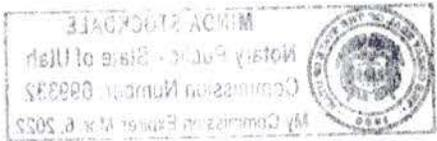 MINDA STOCKDALE
Notary Public - State of Utah
Commission Number: 699332
My Commission Expires Mar. 6, 2022
1896